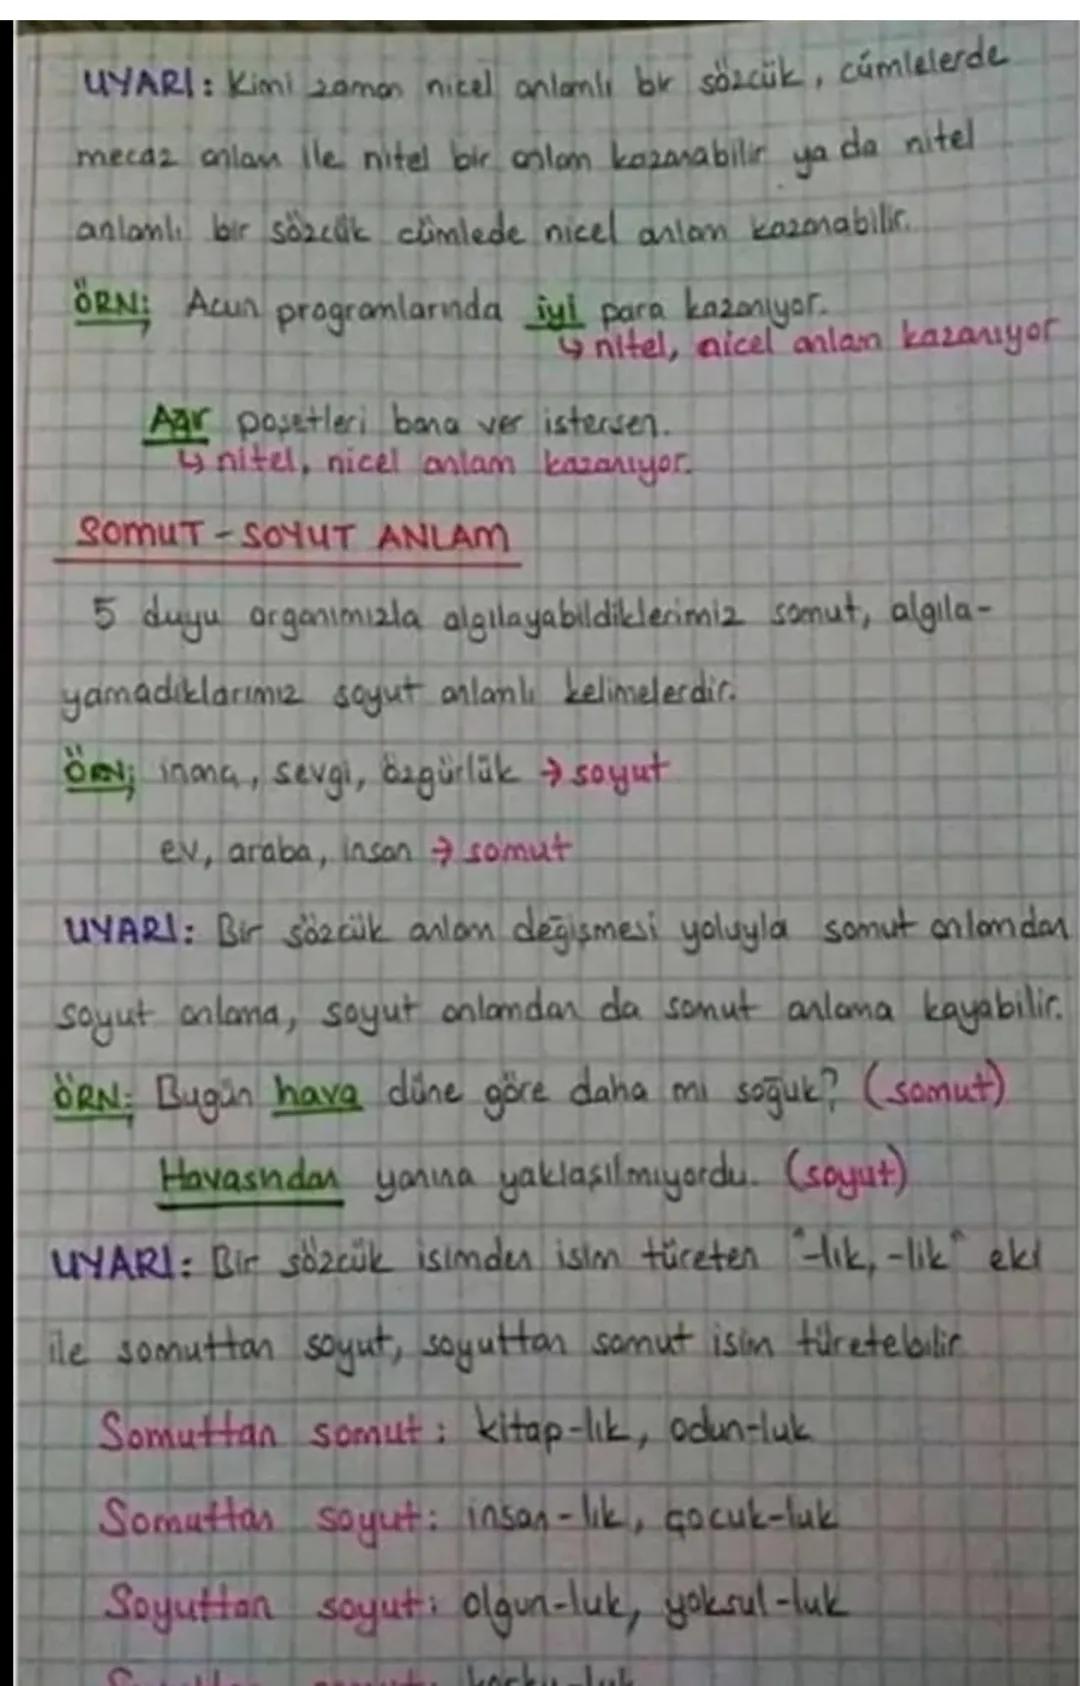 UYARI: Kimi zaman nicel anlamlı bir sözcük, cümlelerde
mecaz anlam ile nitel bir anlam kazanabilir ya da nitel
anlamlı bir sözcük cümlede nicel anlam kazanabilir.
ÖRN: Acun programlarında iyi para kazanıyor.
↳ nitel, nicel anlam kazanıyor
Ağır poşetleri bana ver istersen.
↳ nitel, nicel anlam kazanıyor.
SOMUT - SOYUT ANLAM
5 duyu organımızla algılayabildiklerimiz somut, algıla-
yamadıklarımız soyut anlamlı kelimelerdir.
ÖRN: inanç, sevgi, özgürlük → soyut
ev, araba, insan → somut
UYARI: Bir sözcük anlam değişmesi yoluyla somut anlamdan
soyut anlama, soyut anlamdan da somut anlama kayabilir.
ÖRN: Bugün hava düne göre daha mı soğuk? (somut)
Havasından yanına yaklaşılmıyordu. (soyut)
UYARI: Bir sözcük isimden isim türeten "-lık, -lik" eki
ile somuttan soyut, soyuttan somut isim türetebilir
Somuttan somut: kitap-lık, odun-luk
Somuttan soyut: insan-lık, çocuk-luk
Soyuttan soyut: olgun-luk, yoksul-luk